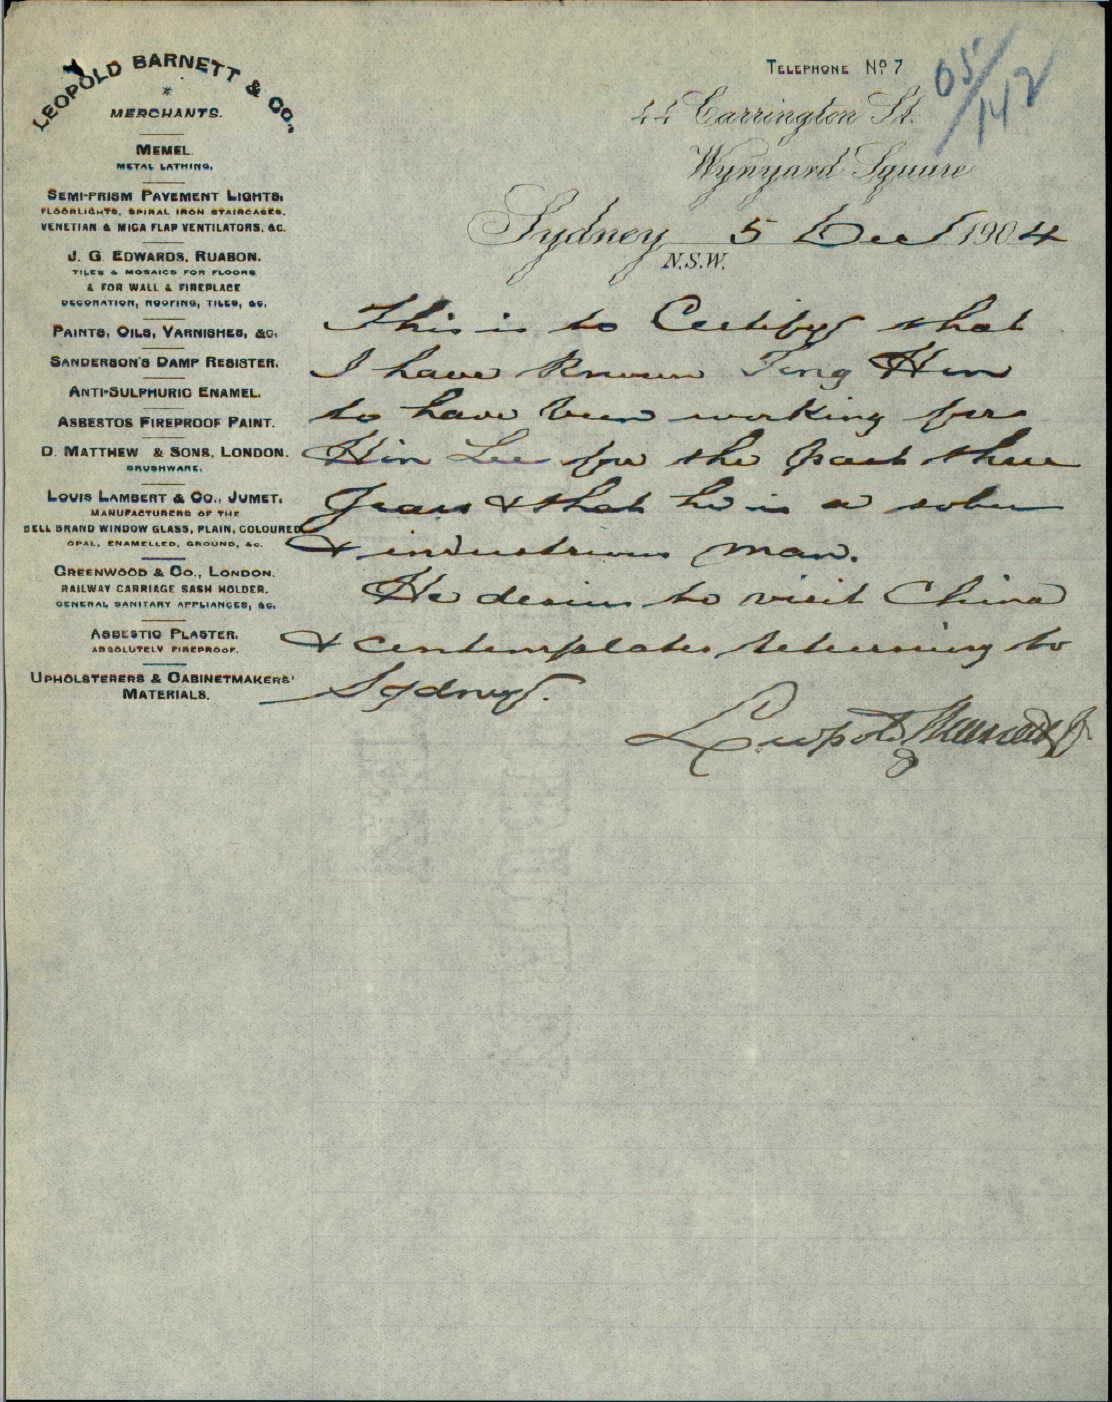 LEOPOLD BARNETT & CO.,
MERCHANTS.
MEMEL
METAL LATHING,
SEMI-PRISM PAVEMENT LIGHTS,
FLOORLIGHTS, SPIRAL IRON STAIRCASES,
VENETIAN & MICA FLAP VENTILATORS, &C.
J. G. EDWARDS, RUABON.
TILES & MOSAICS FOR FLOORS
& FOR WALL & FIREPLACE
DECORATION, ROOFING, TILES, &C.
PAINTS, OILS, VARNISHES, &C.
SANDERSON'S DAMP RESISTER.
ANTI-SULPHURIC ENAMEL.
ASBESTOS FIREPROOF PAINT.
D. MATTHEW & SONS, LONDON.
BRUSHWARE.
LOUIS LAMBERT & CO., JUMET.
MANUFACTURERS OF THE
BELL BRAND WINDOW GLASS, PLAIN, COLOURED
OPAL, ENAMELLED, GROUND, &C.
GREENWOOD & CO., LONDON.
RAILWAY CARRIAGE SASH HOLDER.
GENERAL SANITARY APPLIANCES, &C.
ASBESTIC PLASTER.
ABSOLUTELY FIREPROOF.
UPHOLSTERERS & CABINETMAKERS'
MATERIALS.
TELEPHONE No 7
05/142
44 Carrington St.
Wynyard Square
Sydney 5 Dec 1904
N.S.W.
This is to Certify that
I have known Hin
to have been working for
Hin Lee for the past three
years & that he is a sober
& industrious man.
He desires to visit China
& contemplates returning to
Sydney.
Leopold Barnett Jr